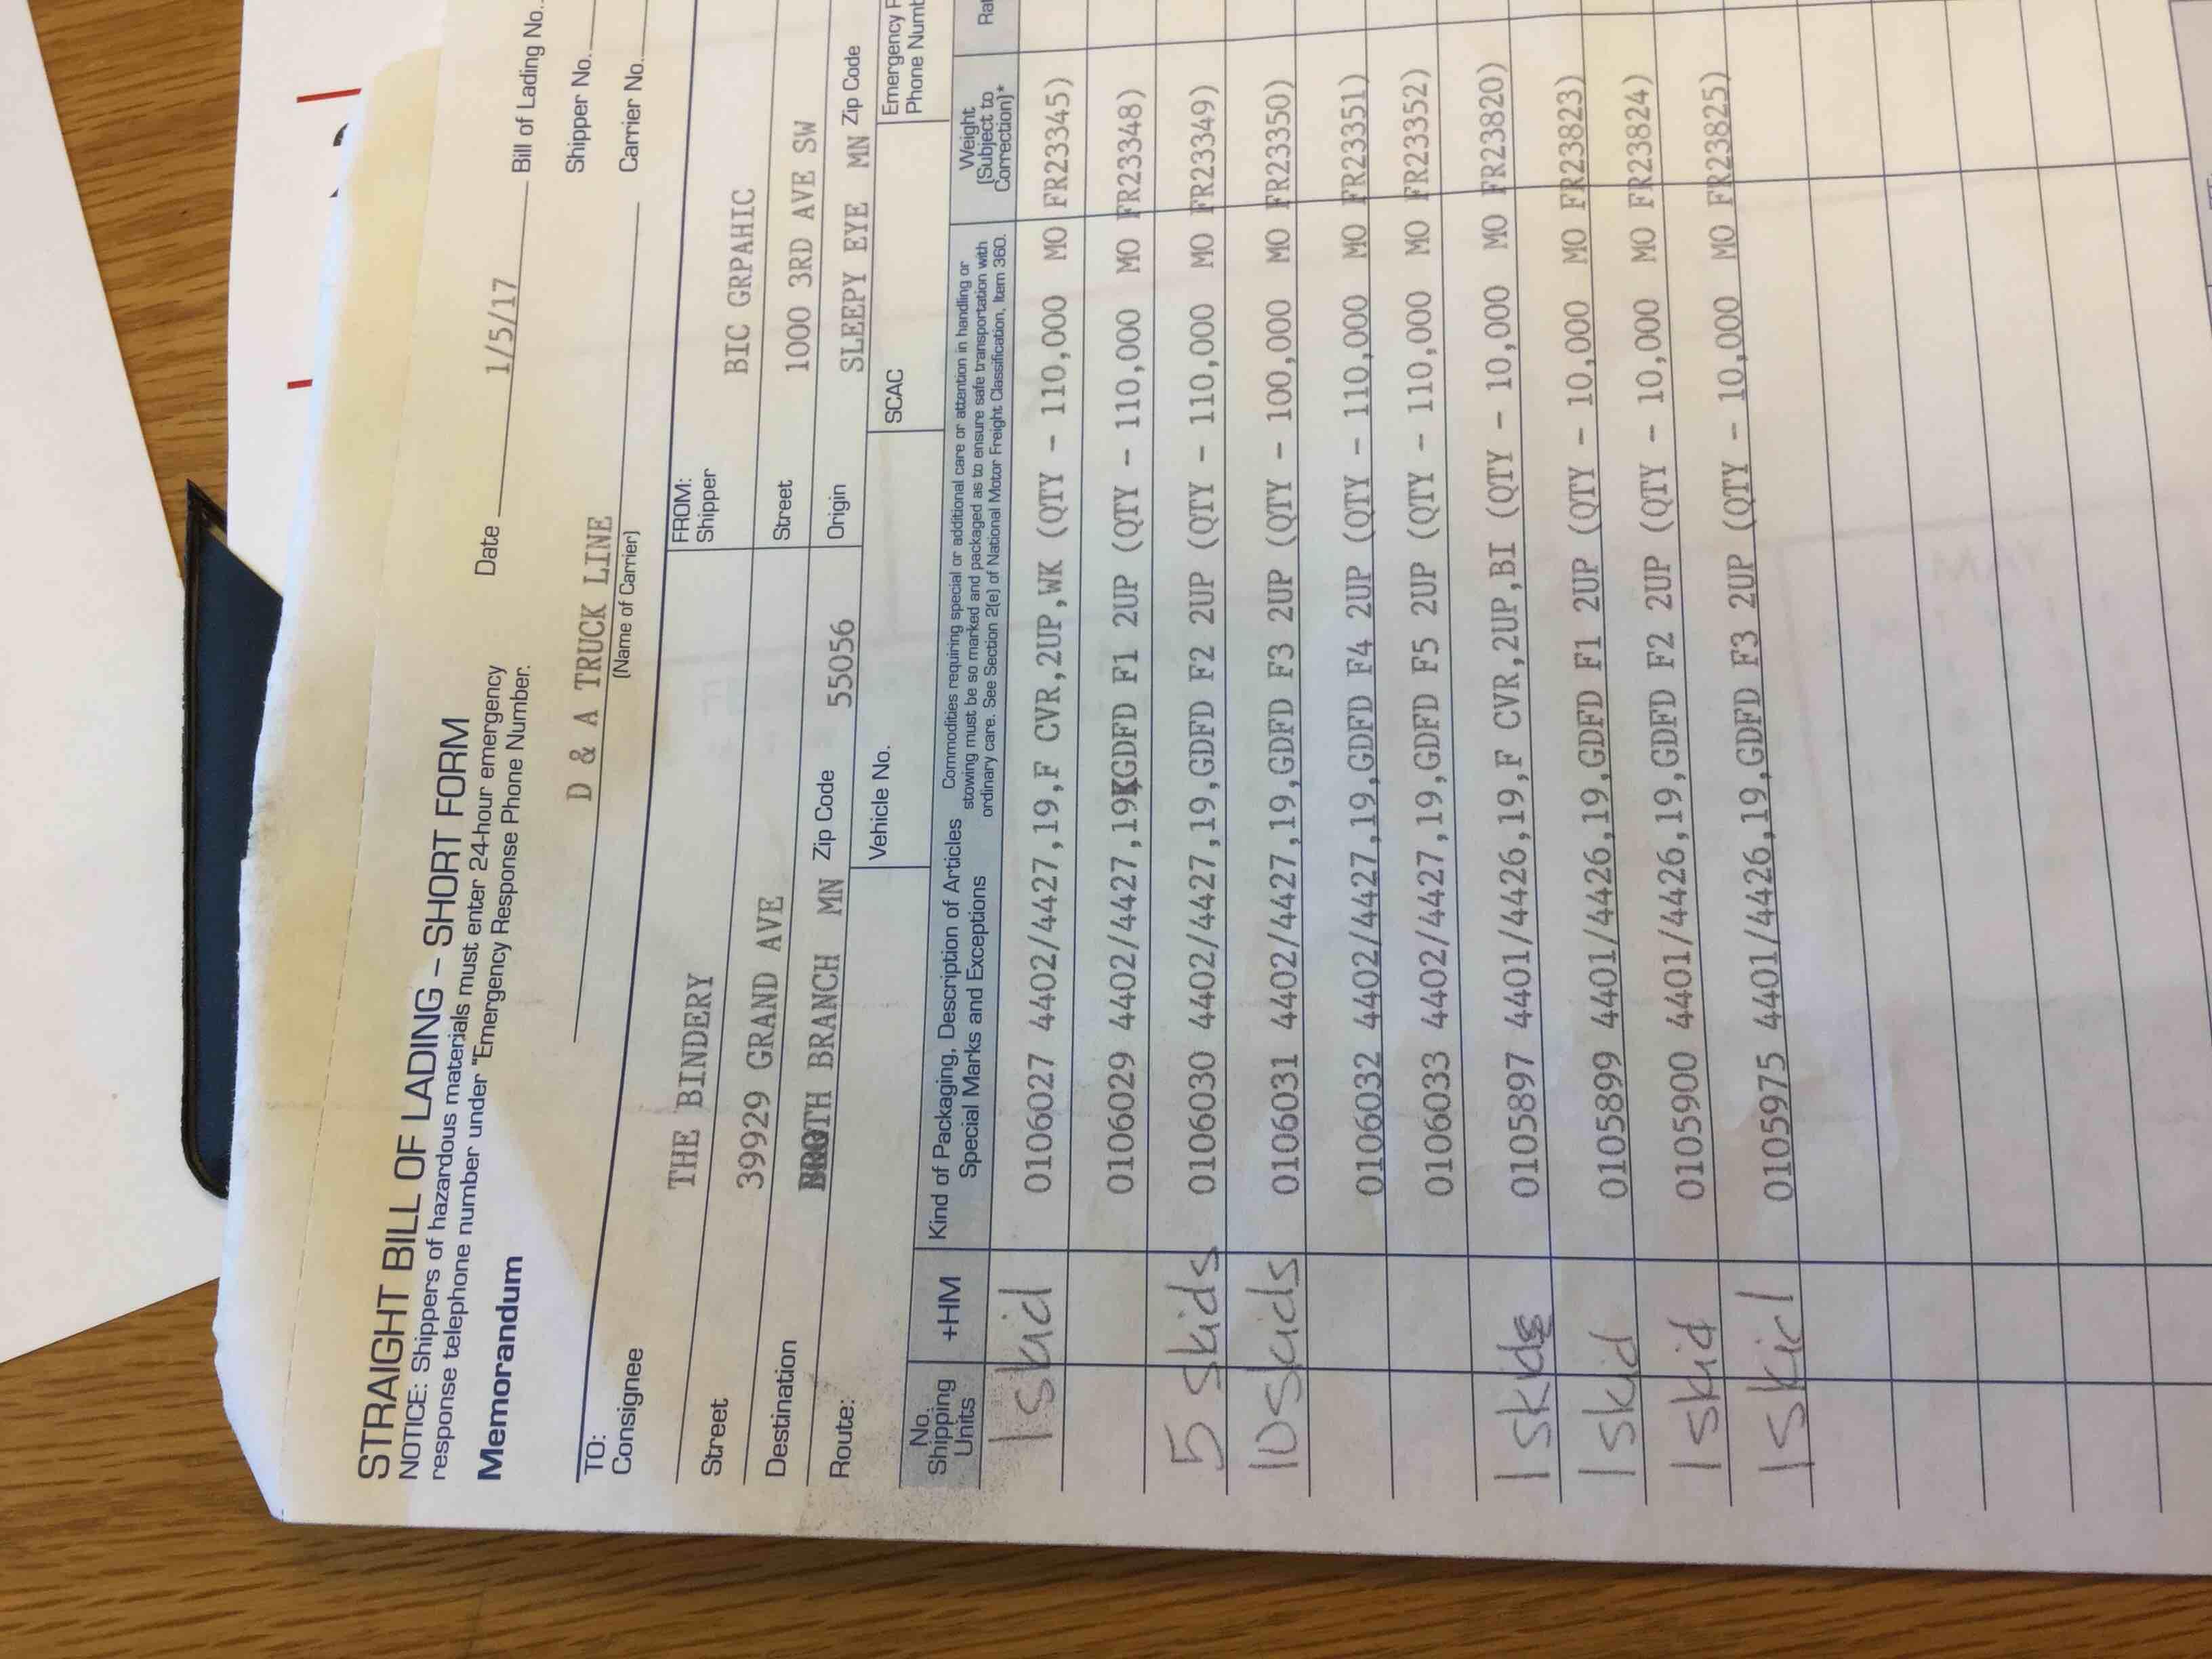 STRAIGHT BILL OF LADING – SHORT FORM
NOTICE: Shippers of hazardous materials must enter 24-hour emergency
response telephone number under "Emergency Response Phone Number.
Memorandum
Date 1/5/17
Bill of Lading No.
Shipper No.
Carrier No.
D & A TRUCK LINE
(Name of Carrier)
TO:
Consignee THE BINDERY
Street 39929 GRAND AVE
Destination MN Zip Code 55056
BRANCH
Route:
FROM:
Shipper BIC GRPAHIC
Street 1000 3RD AVE SW
Origin SLEEPY EYE MN Zip Code
Vehicle No.
SCAC
Emergency
Phone
No. Shipping Units
+HM
Kind of Packaging, Description of Articles
Special Marks and Exceptions
Commodities requiring special or additional care or attention in handling or
stowing must be so marked and packaged as to ensure safe transportation with
ordinary care. See Section 2(e) of National Motor Freight Classification, Item 360.
Weight (Subject to Correction)*
1 skid 0106027 4402/4427,19,F CVR,2UP,WK (QTY - 110,000 MO FR23345)
0106029 4402/4427,19 GDFD F1 2UP (QTY - 110,000 MO FR23348)
5 skids 0106030 4402/4427,19,GDFD F2 2UP (QTY - 110,000 MO FR23349)
10 skids 0106031 4402/4427,19,GDFD F3 2UP (QTY - 100,000 MO FR23350)
0106032 4402/4427,19,GDFD F4 2UP (QTY - 110,000 MO FR23351)
0106033 4402/4427,19,GDFD F5 2UP (QTY - 110,000 MO FR23352)
1 0105897 4401/4426,19,F CVR,2UP,BI (QTY - 10,000 MO FR23820)
1 skid 0105899 4401/4426,19,GDFD F1 2UP (QTY - 10,000 MO FR23823)
1 skid 0105900 4401/4426,19,GDFD F2 2UP (QTY - 10,000 MO FR23824)
1 skid 0105975 4401/4426,19,GDFD F3 2UP (QTY - 10,000 MO FR23825)